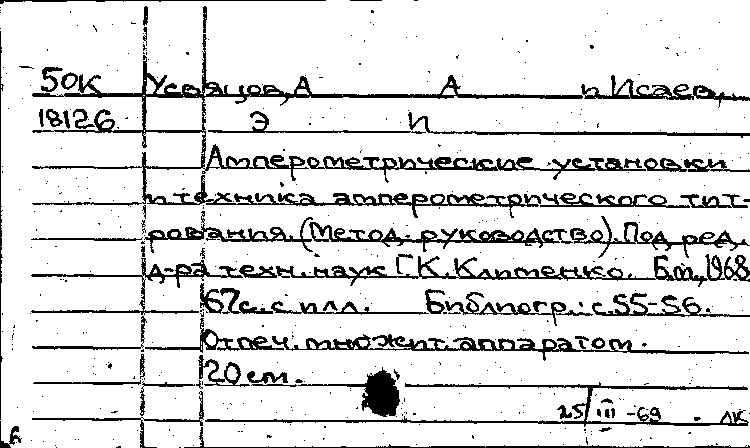 50К Усвяцов, А А и Исаев,
18126 Э И
Амперометрические установки
и техника амперометрического тит-
рования. (Метод. руководство). Под ред.
д-ра техн. наук Г.К. Клименко. Б.м., 1968
67с. с илл. Библиогр.: с. 55-56.
Отпеч. множит. аппаратом.
20 см.
25/III-69 ЛК